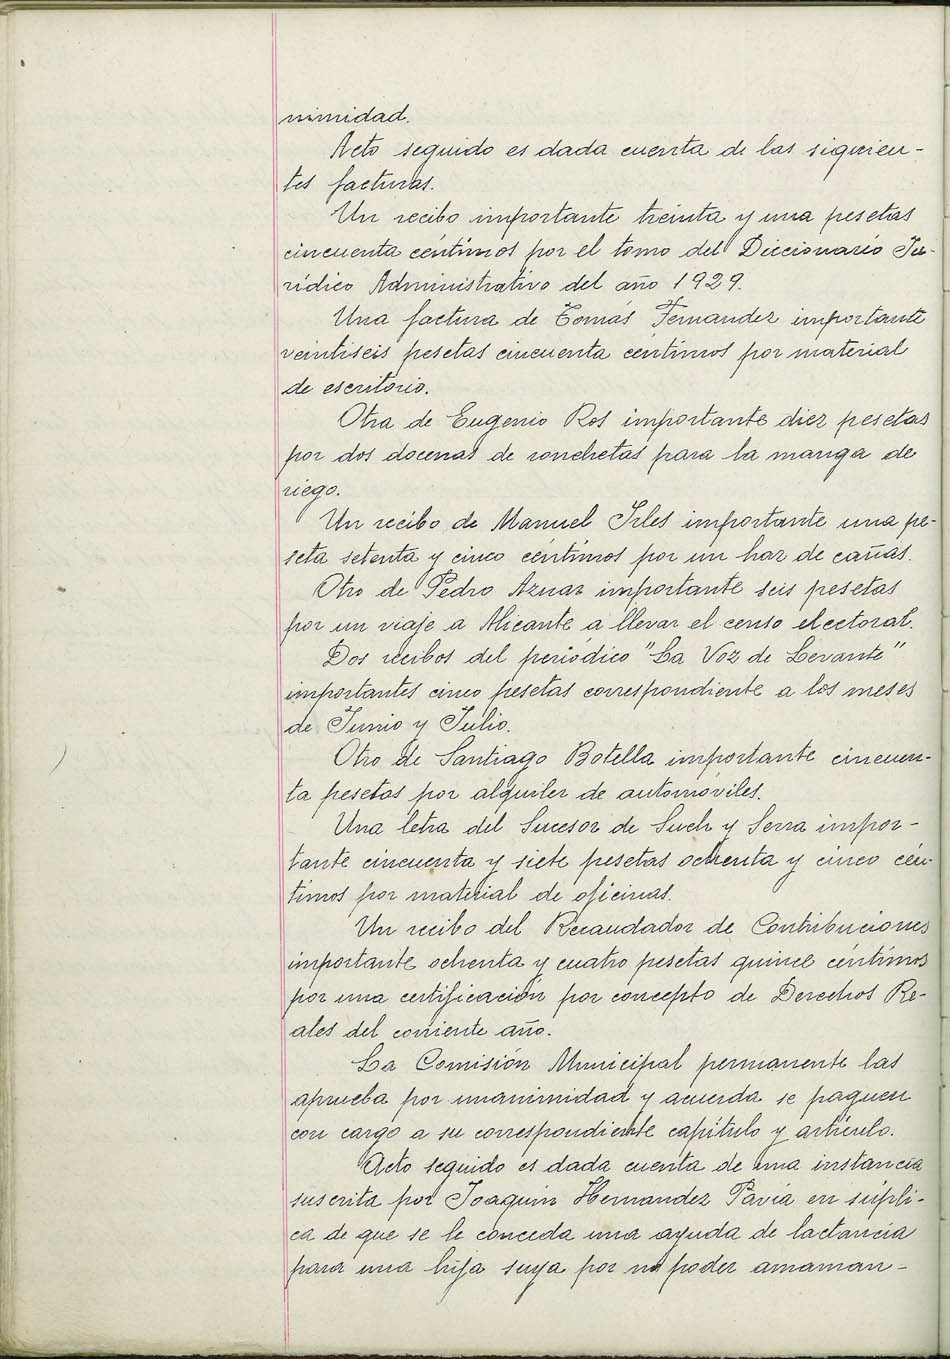 nimidad.
Acto seguido es dada cuenta de las siguien-
tes facturas.
Un recibo importante treinta y una pesetas
cincuenta céntimos por el tomo del Diccionario Ju-
rídico Administrativo del año 1929.
Una factura de Tomás Fernandez importante
veintiseis pesetas cincuenta centimos por material
de escritorio.
Otra de Eugenio Ros importante diez pesetas
por dos docenas de ronchetas para la manga de
riego.
Un recibo de Manuel Irles importante una pe-
seta setenta y cinco céntimos por un haz de cañas.
Otro de Pedro Aznar importante seis pesetas
por un viaje a Alicante a llevar el censo electoral.
Dos recibos del periódico "La Voz de Levante"
importantes cinco pesetas correspondiente a los meses
de Junio y Julio.
Otro de Santiago Botella importante cincuen-
ta pesetas por alquiler de automóviles.
Una letra del Sucesor de Such y Serra impor-
tante cincuenta y siete pesetas ochenta y cinco cén-
timos por material de oficinas.
Un recibo del Recaudador de Contribuciones
importante ochenta y cuatro pesetas quince céntimos
por una certificación por concepto de Derechos Re-
ales del corriente año.
La Comisión Municipal permanente las
aprueba por unanimidad y acuerda se paguen
con cargo a su correspondiente capítulo y artículo.
Acto seguido es dada cuenta de una instancia
suscrita por Joaquin Hernandez Pavia en súpli-
ca de que se le conceda una ayuda de lactancia
para una hija suya por no poder amaman-